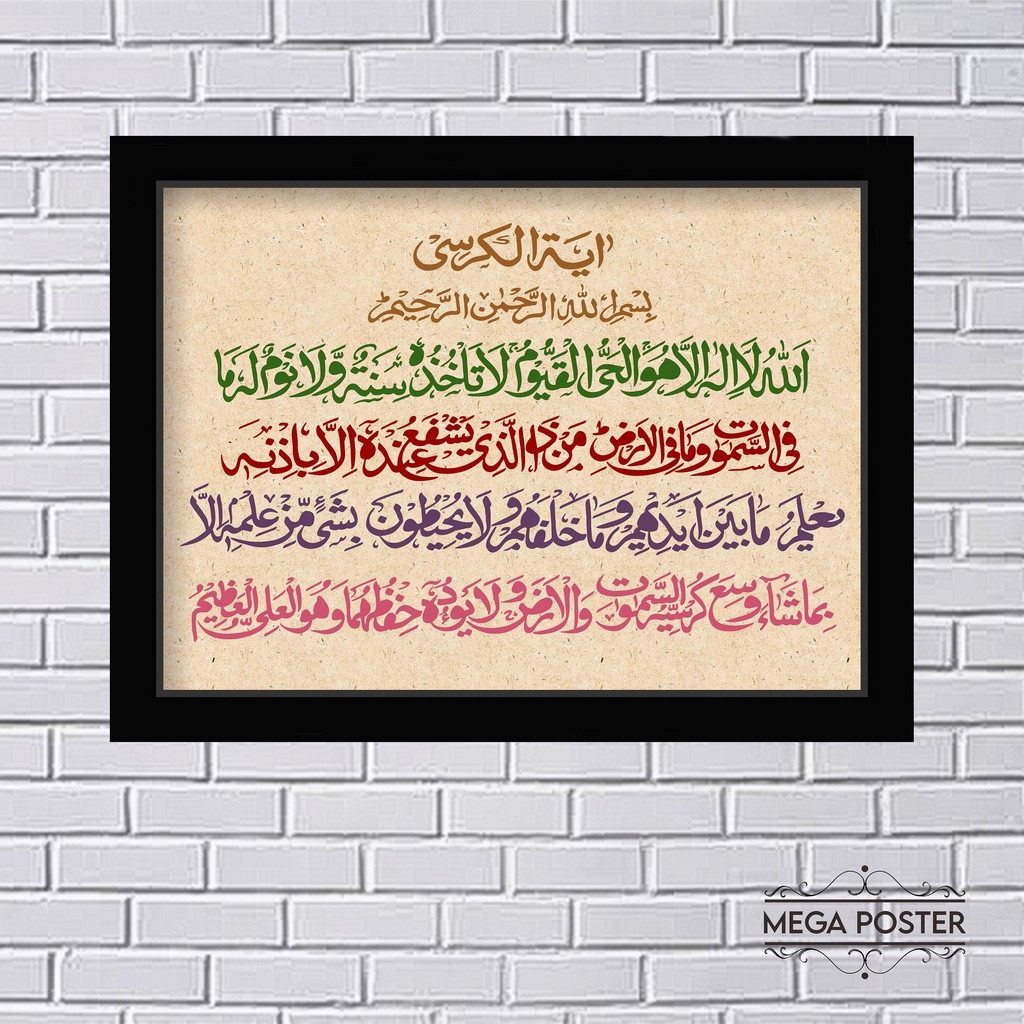 اية الكرسى
بِسْمِ اللهِ الرَّحْمٰنِ الرَّحِيْمِ
اَللهُ لَا اِلٰهَ اِلَّا هُوَ اَلْحَىُّ الْقَيُّوْمُ لَا تَأْخُذُهٗ سِنَةٌ وَّلَا نَوْمٌ لَهٗ مَا
فِى السَّمٰوٰتِ وَمَا فِى الْاَرْضِ مَنْ ذَا الَّذِيْ يَشْفَعُ عِنْدَهٗ اِلَّا بِاِذْنِهٖ
يَعْلَمُ مَا بَيْنَ اَيْدِيْهِمْ وَمَا خَلْفَهُمْ وَلَا يُحِيْطُوْنَ بِشَىْءٍ مِّنْ عِلْمِهٖ اِلَّا
بِمَا شَآءَ وَسِعَ كُرْسِيُّهُ السَّمٰوٰتِ وَالْاَرْضَ وَلَا يَـُٔوْدُهٗ حِفْظُهُمَا وَهُوَ الْعَلِىُّ الْعَظِيْمُ
MEGA POSTER